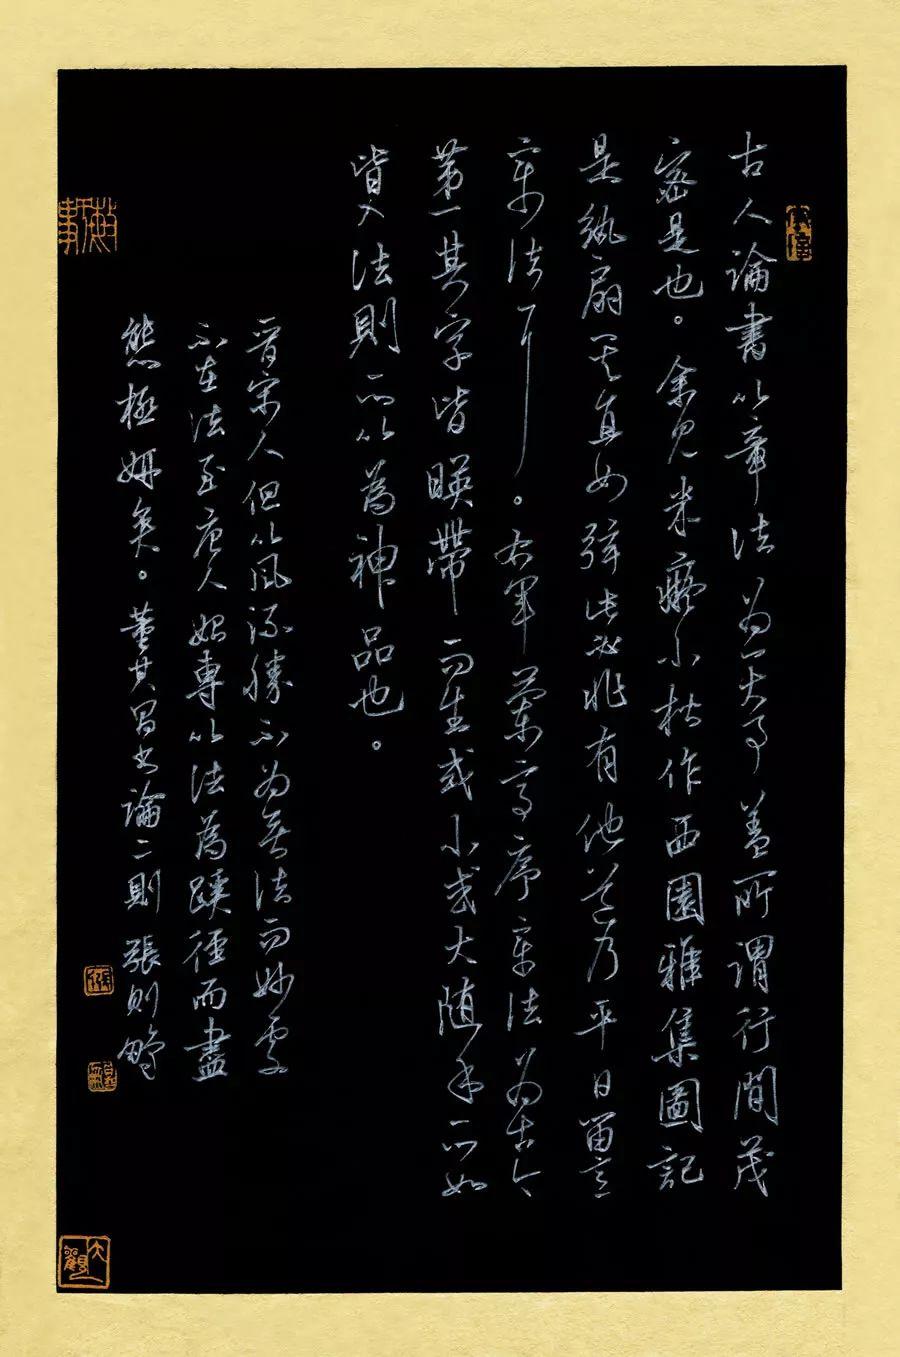 古人論書以章法为一大事蓋所謂行間茂
密是也。余見米癡小楷作西園雅集圖記
是紈扇其直如弦此必非有他道乃平日留意
章法耳。右軍蘭亭序章法为古今
第一其字皆暎帶而生或小或大随手所如
皆入法則所以為神品也。
晉宋人但以風流勝不为無法而妙處
不在法至唐人始專以法為蹊徑而盡
態極妍矣。董其昌書論二則 張則
大觀